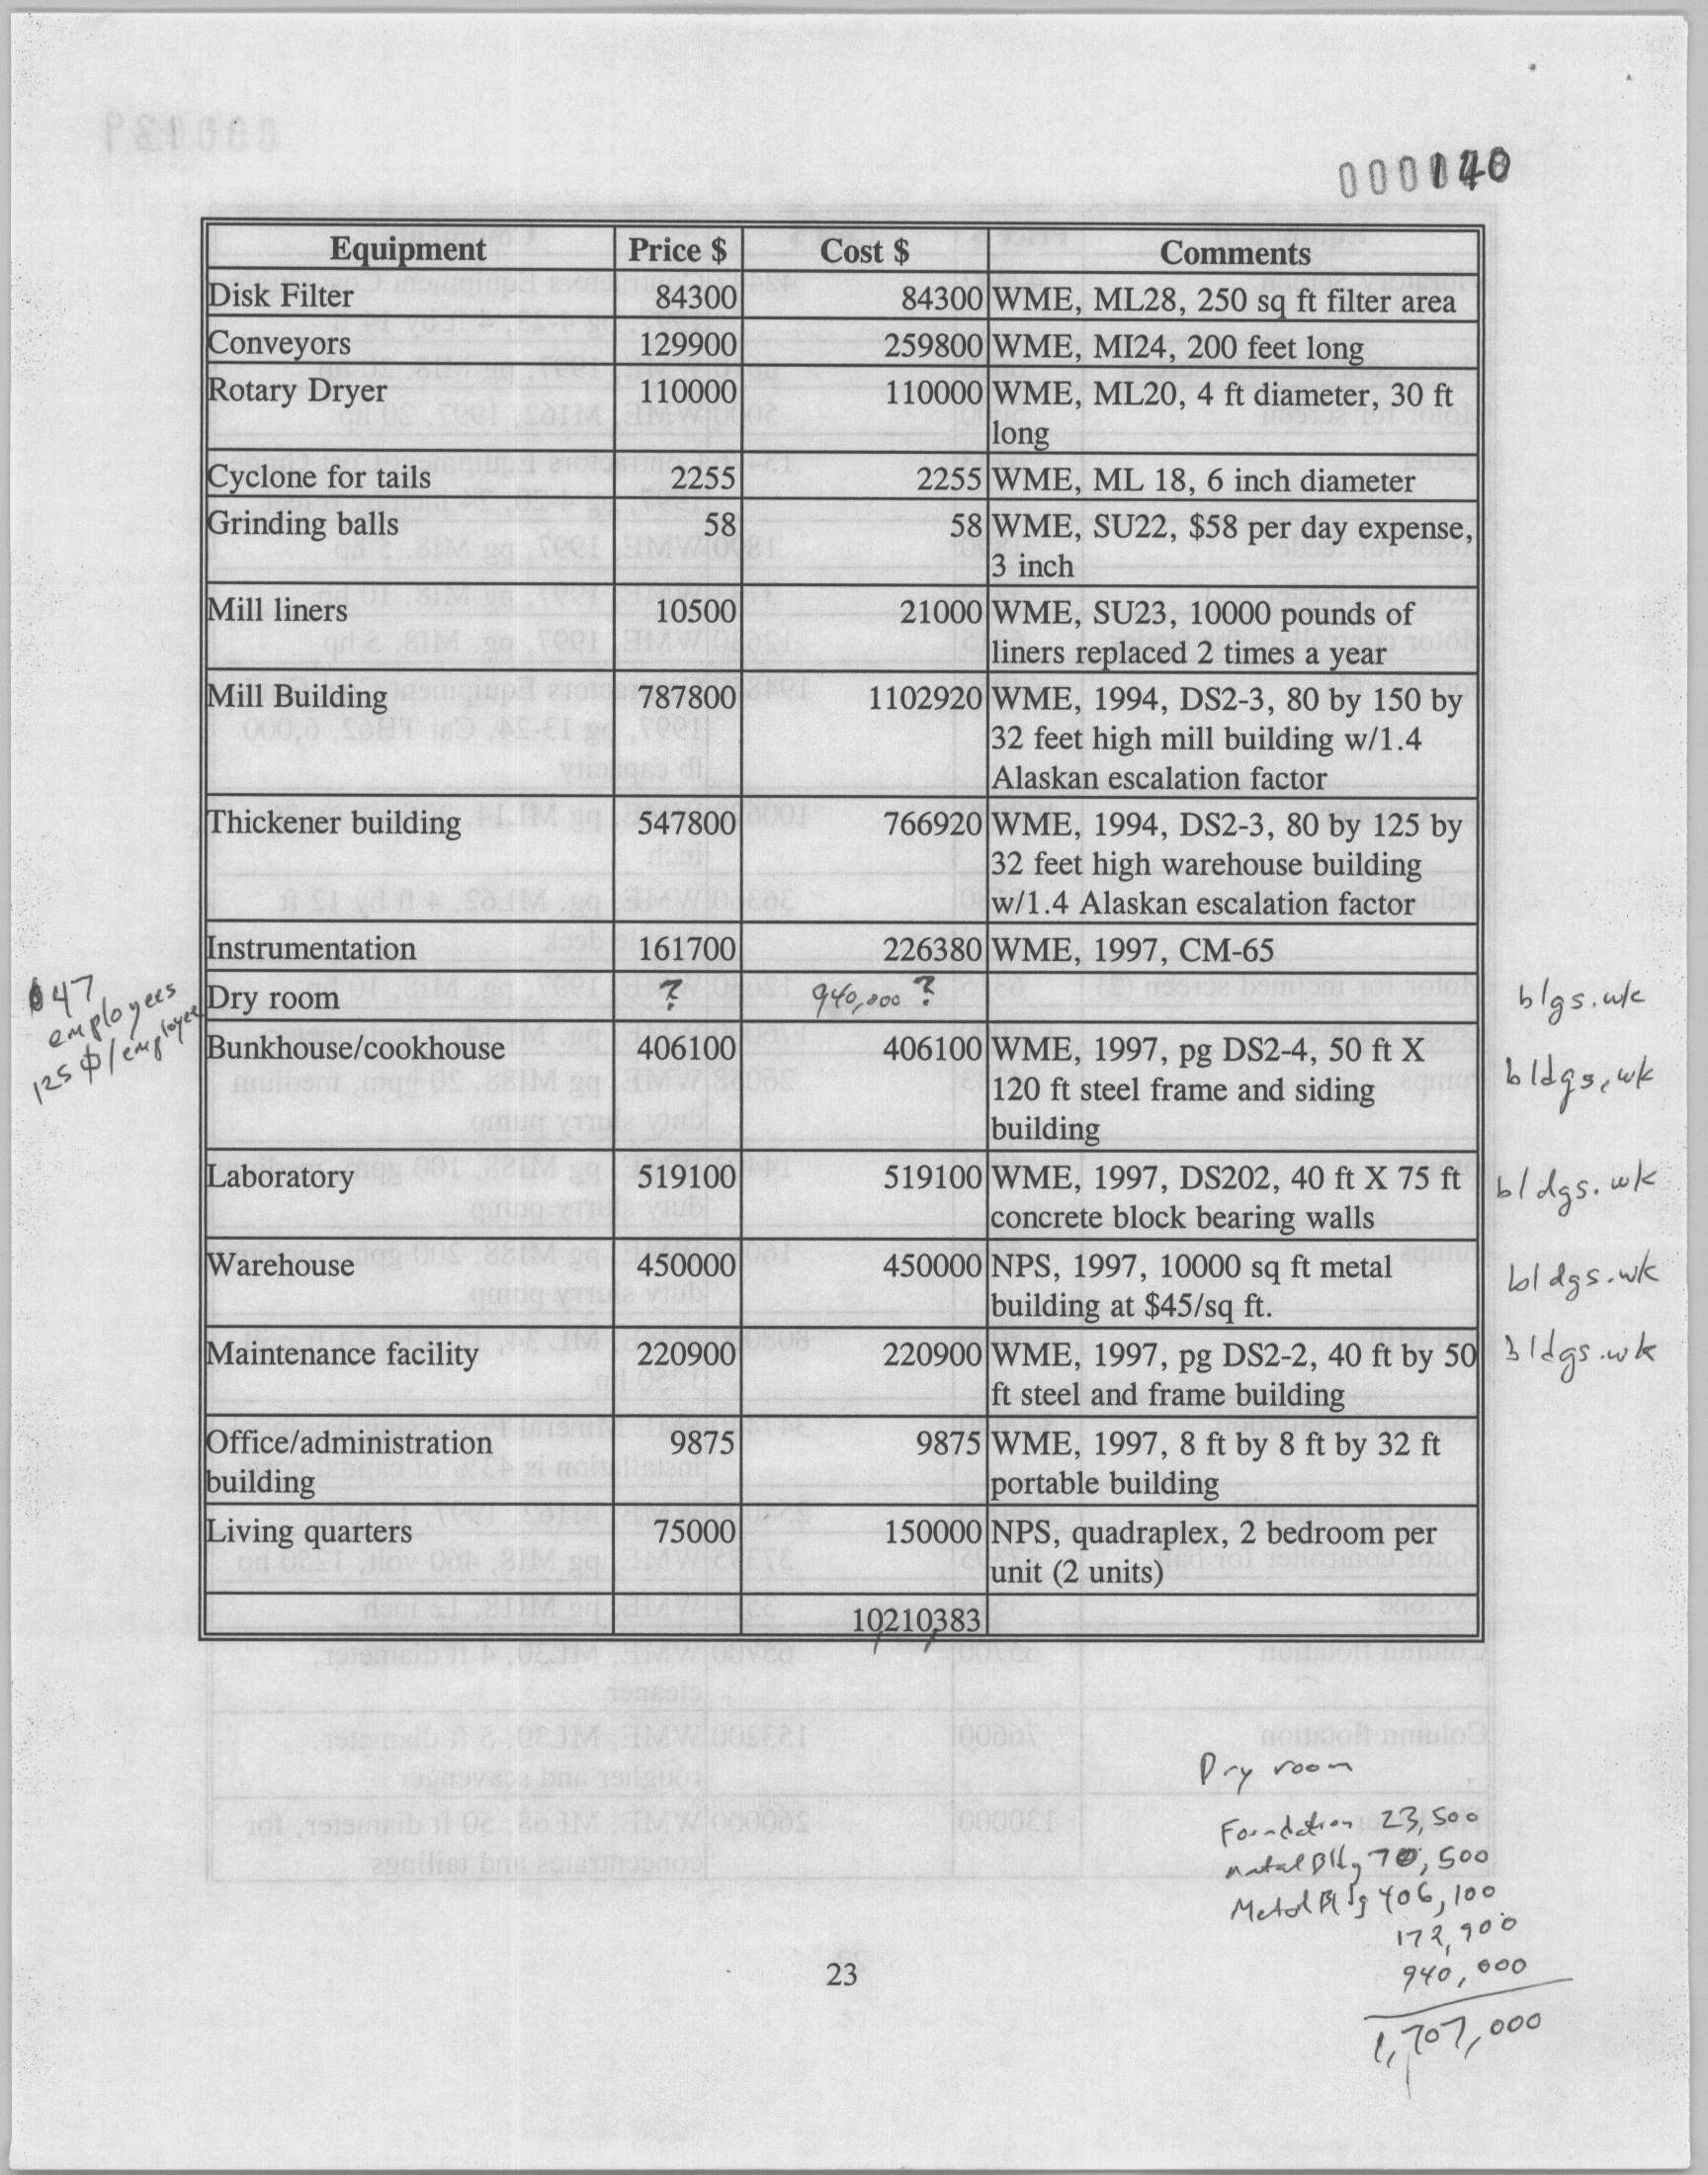 000140
Equipment Price $ Cost $ Comments
Disk Filter 84300 84300 WME, ML28, 250 sq ft filter area
Conveyors 129900 259800 WME, MI24, 200 feet long
Rotary Dryer 110000 110000 WME, ML20, 4 ft diameter, 30 ft
long
Cyclone for tails 2255 2255 WME, ML 18, 6 inch diameter
Grinding balls 58 58 WME, SU22, $58 per day expense,
3 inch
Mill liners 10500 21000 WME, SU23, 10000 pounds of
liners replaced 2 times a year
Mill Building 787800 1102920 WME, 1994, DS2-3, 80 by 150 by
32 feet high mill building w/1.4
Alaskan escalation factor
Thickener building 547800 766920 WME, 1994, DS2-3, 80 by 125 by
32 feet high warehouse building
w/1.4 Alaskan escalation factor
Instrumentation 161700 226380 WME, 1997, CM-65
47
employees
125 ф/employee
Dry room ? 940,000 ? blgs.wk
Bunkhouse/cookhouse 406100 406100 WME, 1997, pg DS2-4, 50 ft X
120 ft steel frame and siding bldgs.wk
building
Laboratory 519100 519100 WME, 1997, DS202, 40 ft X 75 ft bldgs.wk
concrete block bearing walls
Warehouse 450000 450000 NPS, 1997, 10000 sq ft metal bldgs.wk
building at $45/sq ft.
Maintenance facility 220900 220900 WME, 1997, pg DS2-2, 40 ft by 50 bldgs.wk
ft steel and frame building
Office/administration 9875 9875 WME, 1997, 8 ft by 8 ft by 32 ft
building portable building
Living quarters 75000 150000 NPS, quadraplex, 2 bedroom per
unit (2 units)
10210383
Dry room
Foundation 23,500
metal Bldg 70,500
Metal Bldg 406,100
172,900
940,000
1,707,000
23